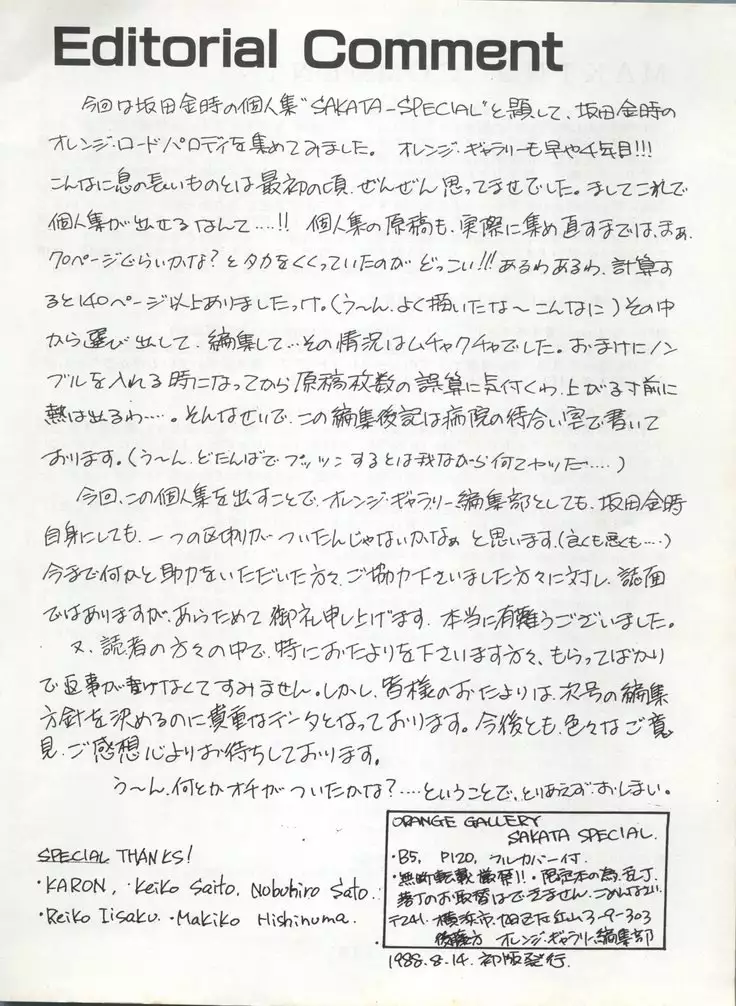 Editorial Comment
今回は坂田金時の個人集"SAKATA-SPECIAL"と題して、坂田金時の
オレンジ・ロードパロディを集めてみました。 オレンジ・ギャラリーも早や4年目!!!
こんなに息の長いものとは最初の頃、ぜんぜん思ってませでした。ましてこれで
個人集が出せるなんて‥‥!! 個人集の原稿も、実際に集め直すまでは、まぁ、
70ページぐらいかな?とタカをくくっていたのが どっこい!!!あるわあるわ、計算す
ると140ページ以上ありましたっけ。(う〜ん、よく描いたな〜こんなに)その中
から選び出して、編集して…その情況はムチャクチャでした。おまけにノン
ブルを入れる時になってから原稿枚数の誤算に気付くわ、上がる寸前に
熱は出るわ‥‥。そんなせいで、この編集後記は病院の待合い室で書いて
おります。(う〜ん、どたんばでプッツンするとは我ながら何てヤツだ‥‥)
今回、この個人集を出すことで、オレンジ・ギャラリー編集部としても、坂田金時
自身にしても、一つの区切りが ついたんじゃないかなぁ と思います。(良くも悪くも‥‥)
今まで何かと助力をいただいた方々、ご協力下さいました方々に対し、誌面
ではありますが、あらためて 御礼申し上げます。本当に有難うございました。
又、読者の方々の中で、特におたよりを下さいます方々、もらってばかり
で返事が書けなくてすみません。しかし、皆様のおたよりは、次号の編集
方針を決めるのに貴重なデータとなっております。今後とも、色々なご意
見、ご感想心よりお待ちしております。
う〜ん、何とかオチが ついたかな?‥‥ということで、とりあえず、おしまい。
SPECIAL THANKS!
・KARON, ・Keiko Saito, Nobuhiro Sato.
・Reiko Iisaku. ・Makiko Hishinuma.
ORANGE GALLERY
SAKATA SPECIAL.
・B5, P120, フルカバー付.
・無断転載厳禁!!・限定本の為、乱丁、
落丁のお取替はできません。ごめんなさい。
〒241. 横浜市旭区 3-9-303
後藤方 オレンジ・ギャラリー編集部
1988.8.14. 初版発行.